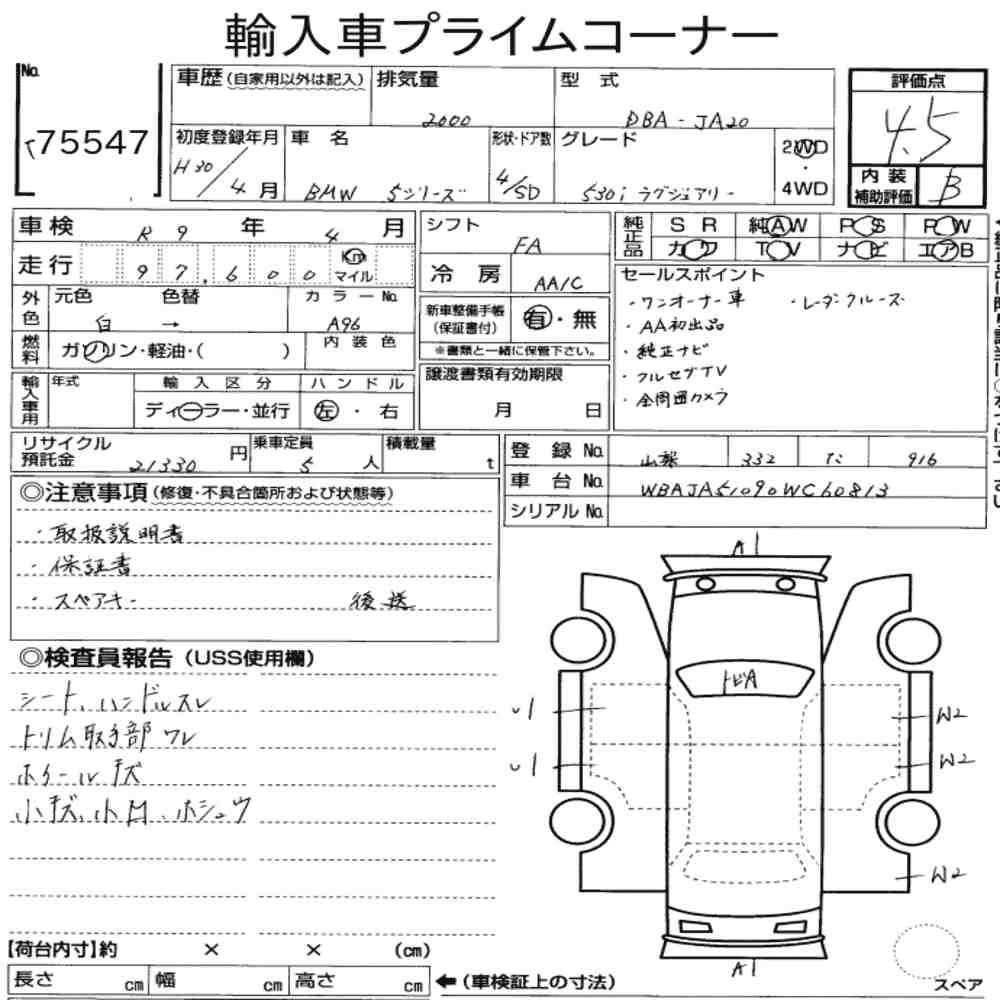 輸入車プライムコーナー
No. 75547
車歴(自家用以外は記入) 排気量 2000 型式 DBA-JA20
初度登録年月 H30/4月 車名 BMW 5シリーズ 形状・ドア数 4/5D グレード 530i ラグジュアリー 2WD・4WD
評価点 4.5
内装補助評価 B
車検 R9年 4月
走行 97,600 Km マイル
シフト FA
冷房 AA/C
純正品 SR 純AW PS PW
カワ TV ナビ エアB
外色 元色 白 色替 → カラーNo. A96
燃料 ガソリン・軽油・( ) 内装色
新車整備手帳(保証書付) 有・無
※書類と一緒に保管下さい。
セールスポイント
・ワンオーナー車 ・レーダークルーズ
・AA初出品
・純正ナビ
・フルセグTV
・全周囲カメラ
輸入車用 年式 輸入区分 ディーラー・並行 ハンドル 左・右
譲渡書類有効期限 月 日
リサイクル預託金 21330円 乗車定員 5人 積載量 t
登録No. 山梨 332 た 916
車台No. WBAJA51090WC60813
シリアルNo.
◎注意事項(修復・不具合箇所および状態等)
・取扱説明書
・保証書
・スペアキー 後送
◎検査員報告(USS使用欄)
シート、ハンドルスレ
トリム取手部ワレ
ホイールキズ
小キズ、小凹、ホシュウ
A1
トビA
U1
U1
W2
W2
W2
A1
スペア
【荷台内寸】約 × × (cm)
長さ cm 幅 cm 高さ cm ←(車検証上の寸法)